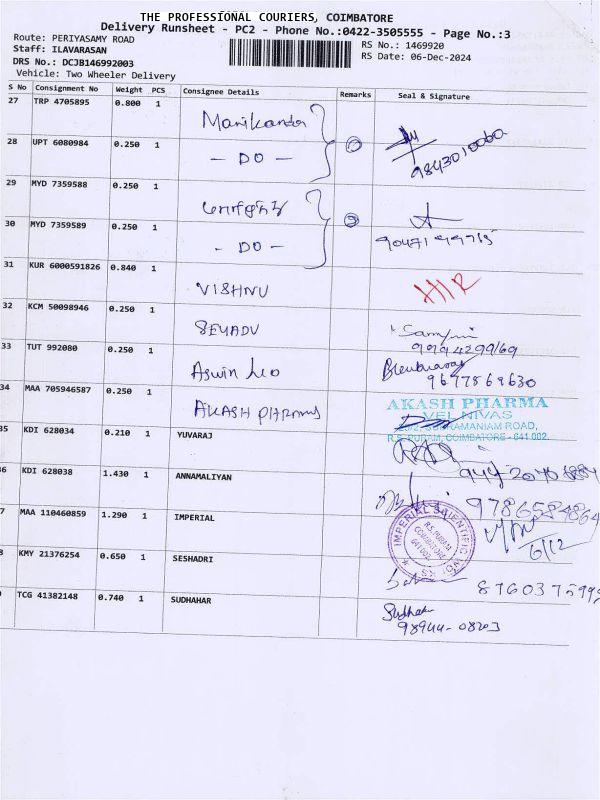 THE PROFESSIONAL COURIERS, COIMBATORE
Delivery Runsheet - PC2 - Phone No.:0422-3505555 - Page No.:3
Route: PERIYASAMY ROAD
Staff: ILAVARASAN
RS No.: 1469920
DRS No.: DCJB146992003
RS Date: 06-Dec-2024
Vehicle: Two Wheeler Delivery
S No Consignment No Weight PCS Consignee Details Remarks Seal & Signature
27 TRP 4705895 0.800 1 Manikanda
28 UPT 6080984 0.250 1 - DO - 9843010060
29 MYD 7359588 0.250 1
30 MYD 7359589 0.250 1 - DO -
31 KUR 6000591826 0.840 1 VISHNU
32 KCM 50098946 0.250 1 SEYADU
33 TUT 992080 0.250 1 Aswin Leo 9677869630
34 MAA 705946587 0.250 1 AKASH PHARMA
AKASH PHARMA
VEL NIVAS
SUBRAMANIAM ROAD,
R.S. PURAM, COIMBATORE - 641 002.
35 KDI 628034 0.210 1 YUVARAJ
6 KDI 628038 1.430 1 ANNAMALIYAN 9786584864
7 MAA 110460859 1.290 1 IMPERIAL
IMPERIAL SCIENTIFIC
R.S. PURAM
COIMBATORE
641 002
6/12
8 KMY 21376254 0.650 1 SESHADRI
TCG 41382148 0.740 1 SUDHAHAR
98944-08203